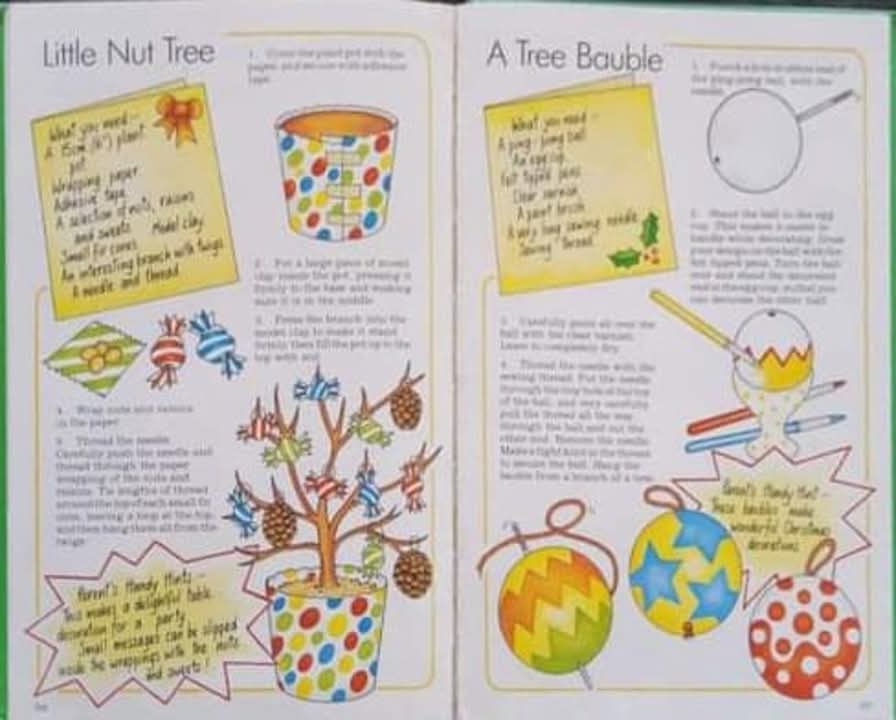 Little Nut Tree
What you need –
A 15cm (6") plant
pot
Wrapping paper
Adhesive tape
A selection of nuts, raisins
and sweets Model clay
Small fir cones
An interesting branch with twigs
A needle and thread
1. Cover the plant pot with the
paper, and secure with adhesive
tape.
2. Put a large piece of model
clay inside the pot, pressing it
firmly to the base and making
sure it is in the middle.
3. Press the branch into the
model clay to make it stand
firmly, then fill the pot up to the
top with soil.
4. Wrap nuts and raisins
in the paper.
5. Thread the needle.
Carefully push the needle and
thread through the paper
wrapping of the nuts and
raisins. Tie lengths of thread
around the top of each small fir
cone, leaving a loop at the top,
and then hang them all from the
twigs.
Parent's Handy Hints –
This makes a delightful table
decoration for a party.
Small messages can be slipped
inside the wrappings with the nuts
and sweets!
A Tree Bauble
What you need –
A ping-pong ball
An egg cup
Felt tipped pens
Clear varnish
A paint brush
A very long sewing needle
Sewing thread
1. Punch a hole in either end of
the ping-pong ball, with the
needle.
2. Stand the ball in the egg
cup. This makes it easier to
handle while decorating. Draw
your design on the ball with the
felt tipped pens. Turn the ball
over and stand the decorated
end in the egg cup, so that you
can decorate the other half.
3. Carefully paint all over the
ball with the clear varnish.
Leave to completely dry.
4. Thread the needle with the
sewing thread. Put the needle
through the tiny hole at the top
of the ball, and very carefully
pull the thread all the way
through the ball and out the
other end. Remove the needle.
Make a tight knot in the thread
to secure the ball. Hang the
bauble from a branch of a tree.
Parent's Handy Hint –
These baubles make
wonderful Christmas
decorations.